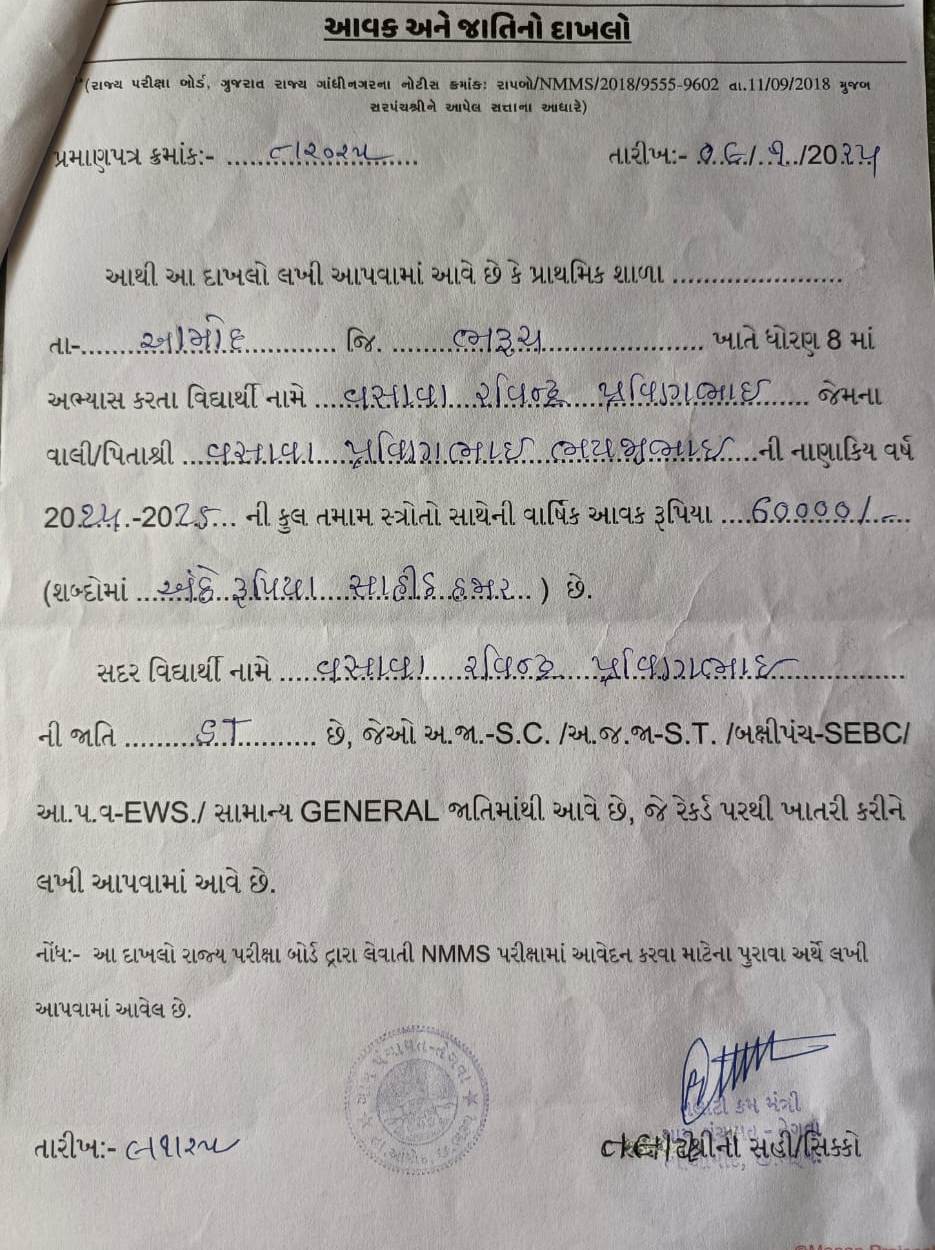 આવક અને જાતિનો દાખલો
(રાજ્ય પરીક્ષા બોર્ડ, ગુજરાત રાજ્ય ગાંધીનગરના નોટીસ ક્રમાંક: રાપબો/NMMS/2018/9555-9602 તા.11/09/2018 મુજબ
સરપંચશ્રીને આપેલ સત્તાના આધારે)
પ્રમાણપત્ર ક્રમાંક:- ................... તારીખ:- ૦૬/૧/20૨૫
આથી આ દાખલો લખી આપવામાં આવે છે કે પ્રાથમિક શાળા ......................
તા-......આમોદ............ જિ. ......ભરૂચ.................. ખાતે ધોરણ 8 માં
અભ્યાસ કરતા વિદ્યાર્થી નામે ...વસાવા રવિન્દ્ર પ્રવિણભાઇ...... જેમના
વાલી/પિતાશ્રી ...વસાવા પ્રવિણભાઇ ....ની નાણાકિય વર્ષ
20૨૫.-2025... ની કુલ તમામ સ્ત્રોતો સાથેની વાર્ષિક આવક રૂપિયા ....60000/-
(શબ્દોમાં ...અંકે રૂપિયા સાહીઠ હજાર.. ) છે.
સદર વિદ્યાર્થી નામે .....વસાવા રવિન્દ્ર પ્રવિણભાઇ...............
ની જાતિ .........ST.......... છે, જેઓ અ.જા.-S.C. /અ.જ.જા-S.T. /બક્ષીપંચ-SEBC/
આ.પ.વ-EWS./ સામાન્ય GENERAL જાતિમાંથી આવે છે, જે રેકર્ડ પરથી ખાતરી કરીને
લખી આપવામાં આવે છે.
નોંધ:- આ દાખલો રાજ્ય પરીક્ષા બોર્ડ દ્વારા લેવાતી NMMS પરીક્ષામાં આવેદન કરવા માટેના પુરાવા અર્થે લખી
આપવામાં આવેલ છે.
તલાટી કમ મંત્રી
તારીખ:- તલાટીશ્રીની સહી/સિક્કો